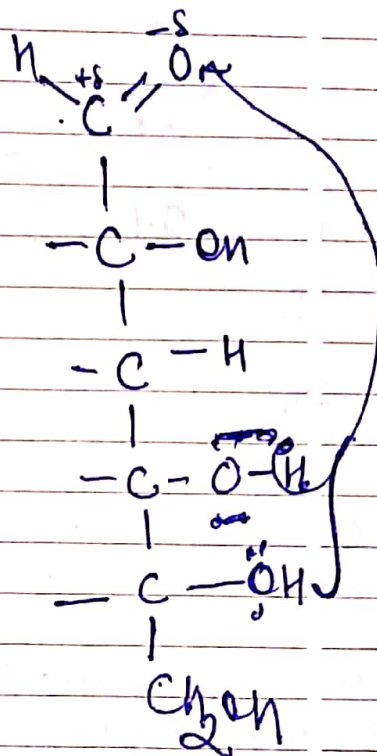 -δ
H +δ C = O
- C - OH
- C - H
- C - O - H
- C - ÖH
CH₂OH